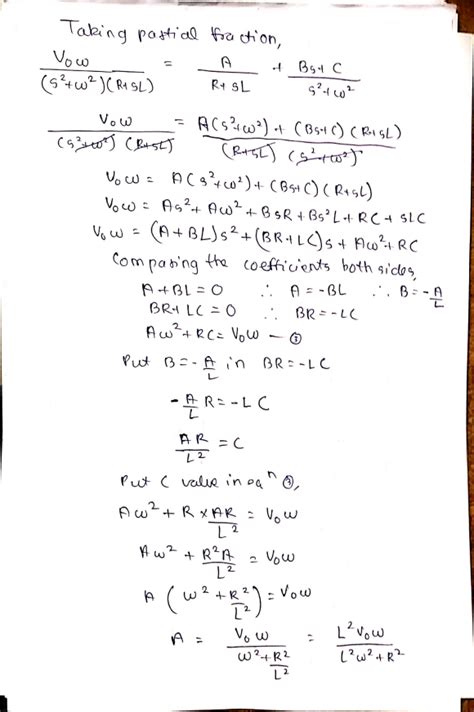 Taking partial fraction,
V₀ω / (s²+ω²)(R+sL) = A / R+sL + Bs+C / s²+ω²
V₀ω / (s²+ω²)(R+sL) = A(s²+ω²)+(Bs+C)(R+sL) / (R+sL)(s²+ω²)
V₀ω = A(s²+ω²)+(Bs+C)(R+sL)
V₀ω = As²+Aω²+BsR+Bs²L+RC+sLC
V₀ω = (A+BL)s²+(BR+LC)s+Aω²+RC
Comparing the coefficients both sides,
A+BL=0 ∴ A=-BL ∴ B=-A/L
BR+LC=0 ∴ BR=-LC
Aω²+RC=V₀ω —③
Put B=-A/L in BR=-LC
-A/L R=-LC
AR/L² = C
Put C value in eqⁿ ③,
Aω²+R×AR/L² = V₀ω
Aω²+R²A/L² = V₀ω
A(ω²+R²/L²)=V₀ω
A = V₀ω / ω²+R²/L² = L²V₀ω / L²ω²+R²